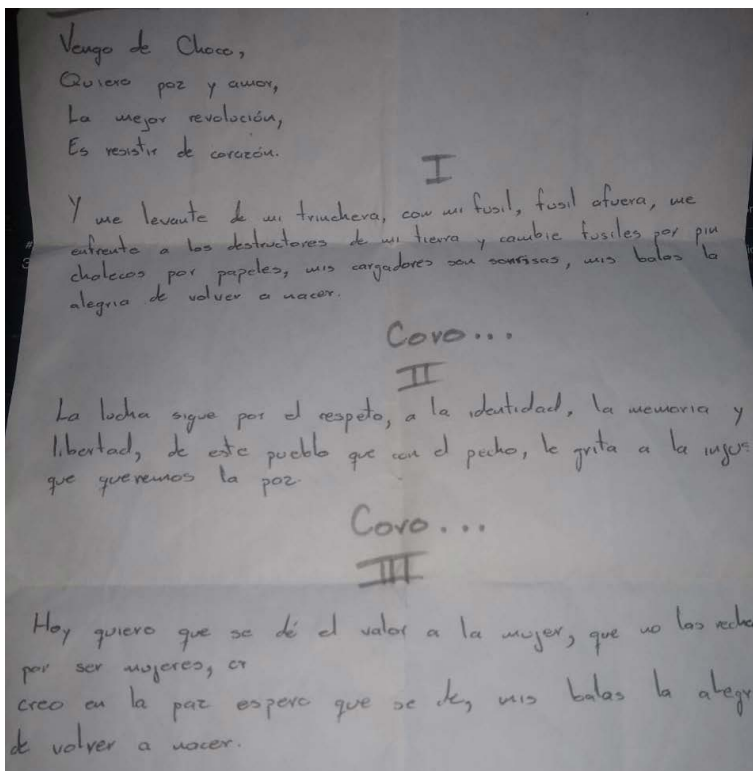 Vengo de Choco,
Quiero paz y amor,
La mejor revolución,
Es resistir de corazón.
I
Y me levante de mi trinchera, con mi fusil, fusil afuera, me
enfrente a los destructores de mi tierra y cambie fusiles por pin
chalecos por papeles, mis cargadores son sonrisas, mis balas la
alegria de volver a nacer.
Coro...
II
La lucha sigue por el respeto, a la identidad, la memoria y
libertad, de este pueblo que con el pecho, le grita a la injus
que queremos la paz.
Coro...
III
Hoy quiero que se dé el valor a la mujer, que no las recha
por ser mujeres, cr
creo en la paz espero que se de, mis balas la alegr
de volver a nacer.